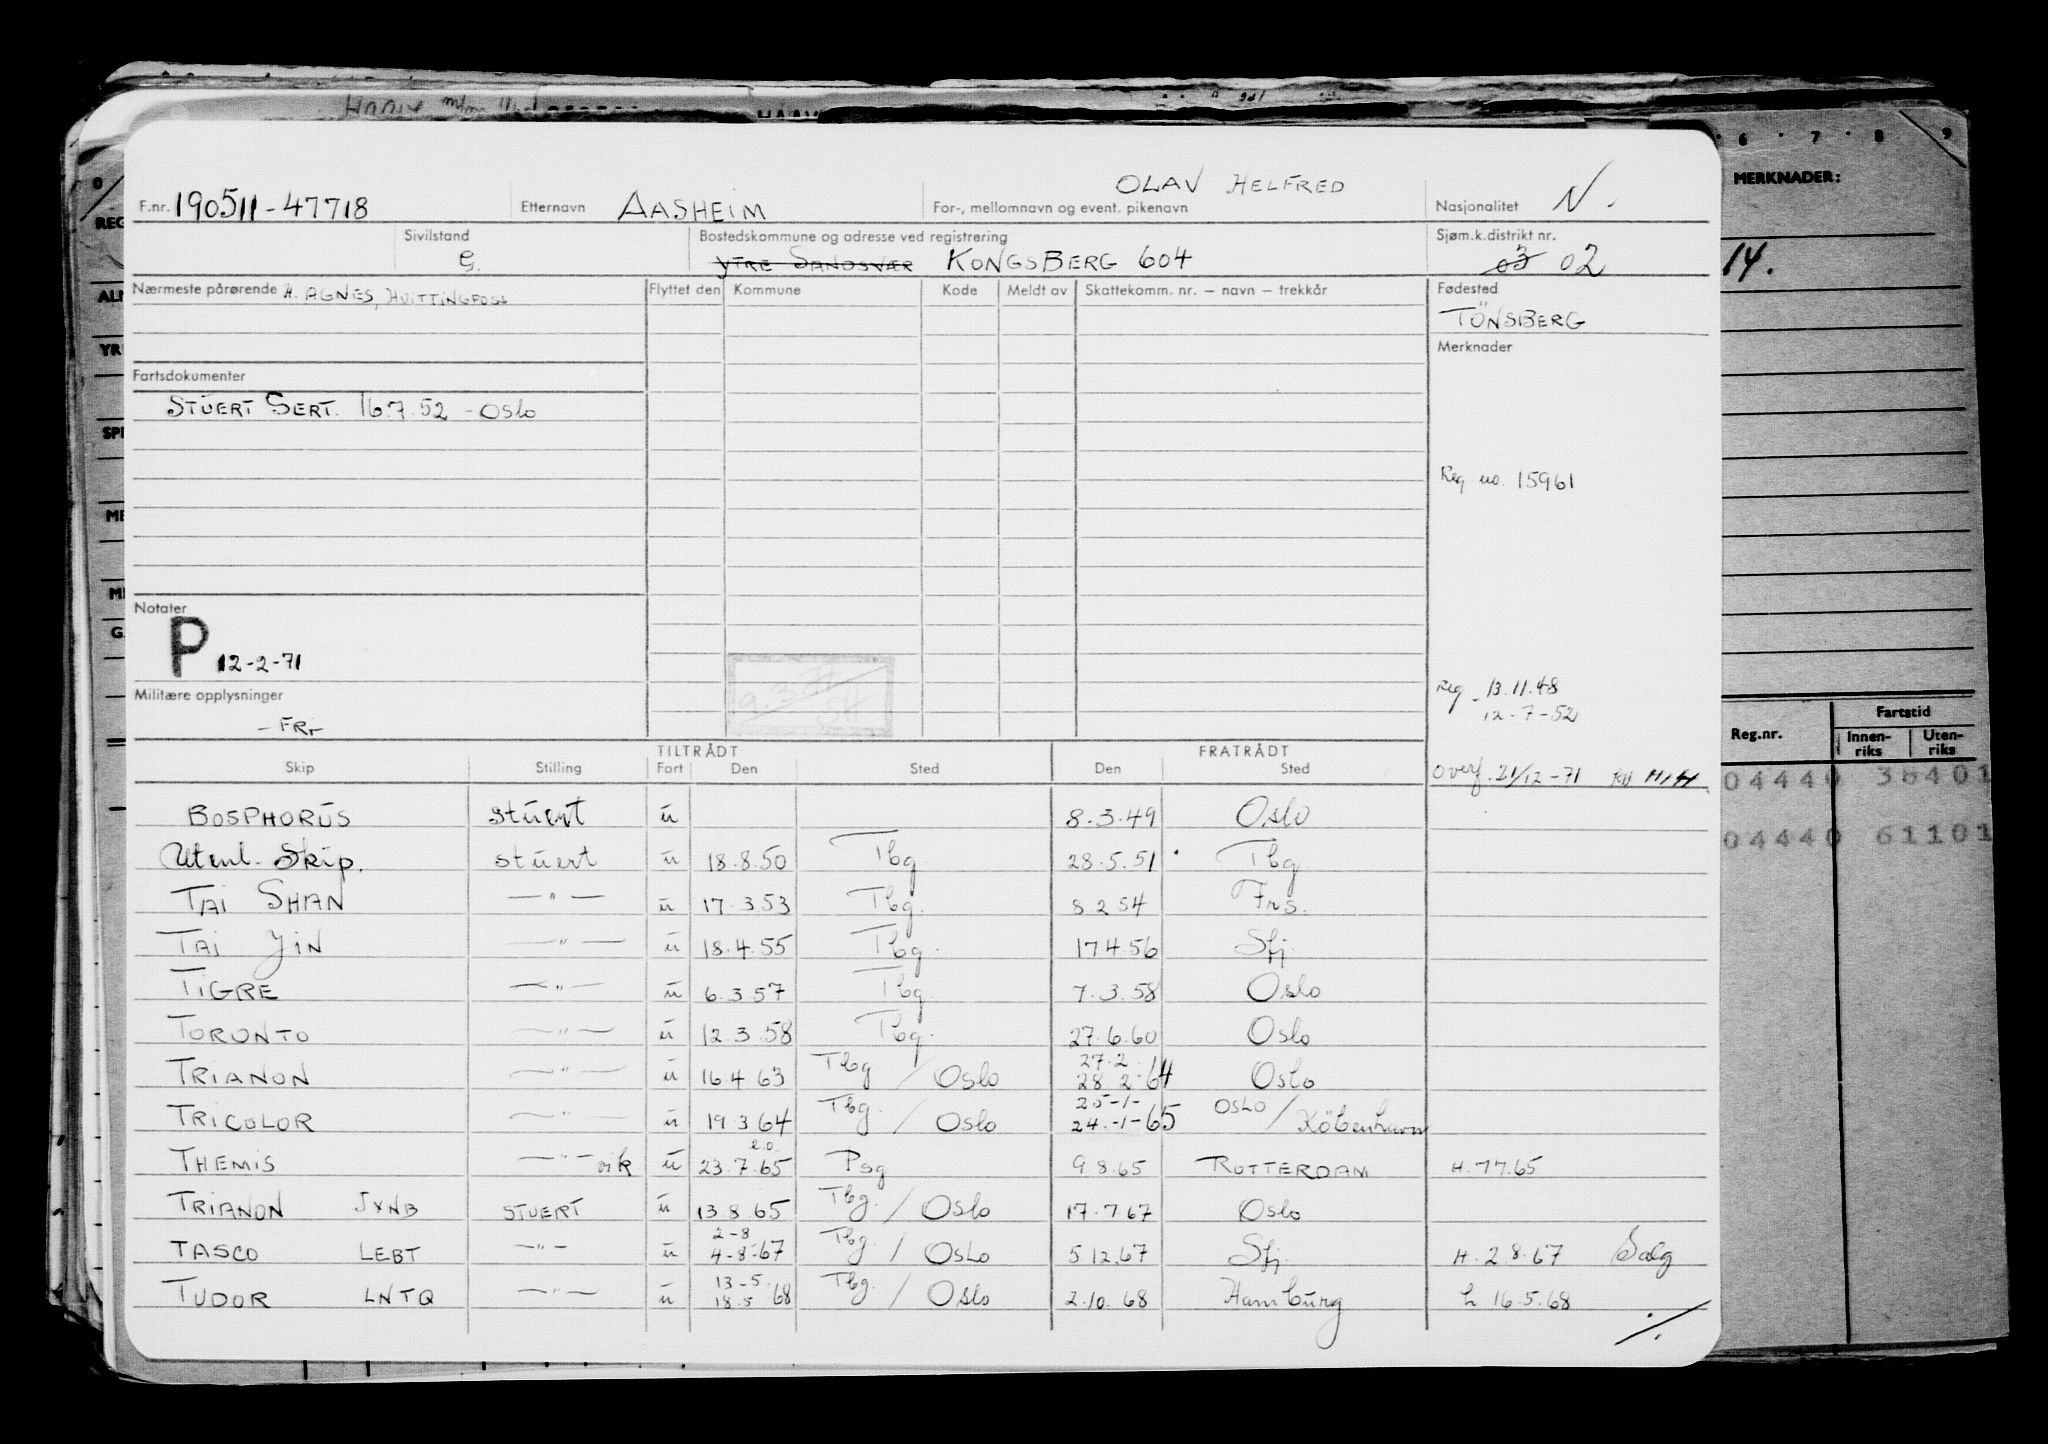 HAAV
6 · 7 · 8 · 9
0
MERKNADER:
OLAV HELFRED
F.nr. 190511-47718 Etternavn AASHEIM For-, mellomnavn og event. pikenavn Nasjonalitet N.
Sivilstand G. Bostedskommune og adresse ved registrering Sjøm.k.distrikt nr.
YTRE SANDSVÆR KONGSBERG 604 03 02
14.
Nærmeste pårørende H. AGNES, HVITTINGFOSS Flyttet den Kommune Kode Meldt av Skattekomm. nr. – navn – trekkår Fødested
TÖNSBERG
Merknader
Fartsdokumenter
STUERT SERT. 16.7.52 - OSLO
Reg no. 15961
Notater
P 12-2-71
9.3.71
SH
Militære opplysninger
- FRI-
Reg - 13.11.48
12-7-52
Reg.nr. Fartstid
Innen-riks Uten-riks
TILTRÅDT FRATRÅDT
Skip Stilling Fart Den Sted Den Sted
Overf. 21/12-71
04440 36401
BOSPHORUS stuert u 8.3.49 Oslo
04440 61101
Utenl. Skip. stuert u 18.8.50 Tbg 28.5.51 Tbg
TAI SHAN —"— u 17.3.53 Tbg. 8 2 54 Frs.
TAI YIN —"— u 18.4.55 Tbg. 17 4.56 Sfj.
TIGRE —"— u 6.3.57 Tbg. 7.3.58 Oslo
TORONTO —"— u 12.3.58 Tbg. 27.6.60 Oslo
27.2
TRIANON —"— u 16.4 63 Tbg / Oslo 28.2-64 Oslo
25-1-
TRICOLOR —"— u 19 3 64 Tbg. / Oslo 24.-1-65 OSLO / Köbenhavn
20
THEMIS —"— vik u 23.7.65 Psg 9.8.65 ROTTERDAM H. 17.65
TRIANON JXNB STUERT u 13.8.65 Tbg. / Oslo 17.7.67 Oslo
2-8
TASCO LEBT —"— u 4-8-67 Tbg. / OSLO 5.12.67 Sfj. H. 2.8.67 Salg
13-5
TUDOR LNTQ —"— u 18.5 68 Tbg. / Oslo 2.10.68 Hamburg L 16.5.68
./.